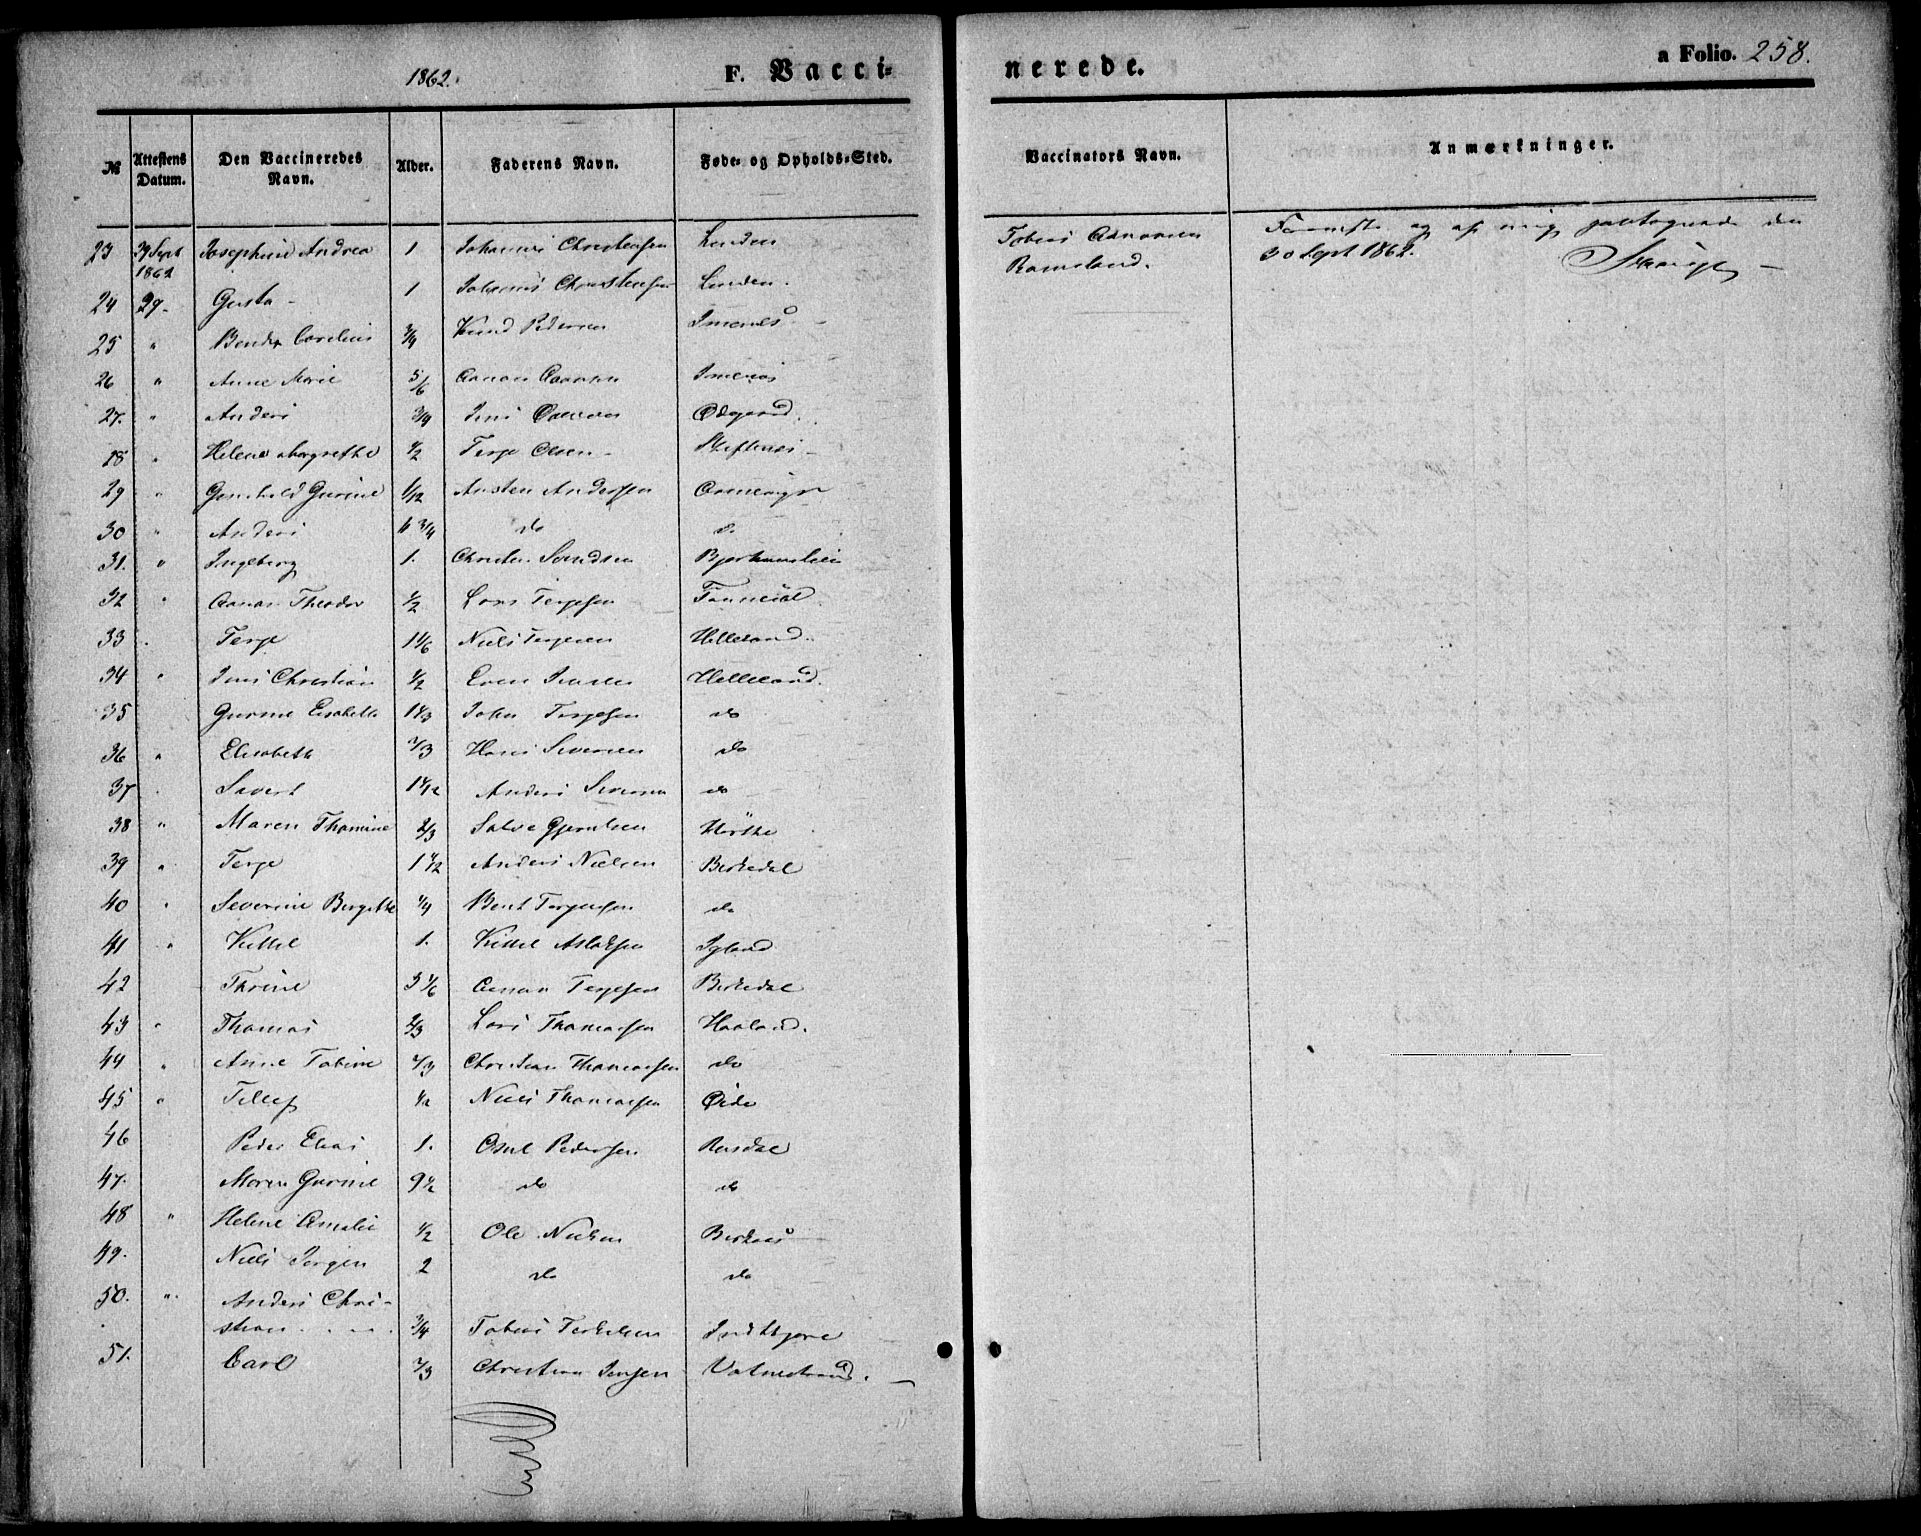 1862.
F. Vacci-
nerede.
a Folio. 258.
№ Attestens Datum. Den Vaccineredes Navn. Alder. Faderens Navn. Føde- og Opholds-Sted. Vaccinators Navn. Anmærkninger.
23 29 Sept 1862 Josephine Andrea 1 Johannes Christensen Linden Tobias Aanonsen Ramsland. og af mig den 30 Sept 1862.
24 29. Gusta - 1 Johannes Christensen Linden.
25 " Cornelius 3/4 Knud Pedersen Imenes -
26 " Anne Marie 5/6 Aanon Imenes
27. " Anders 3/4 Jens Ødegaard.
18 " Helene Margrethe 1/2 Terje Olsen - -
29 " Gunhild Gurine 1/12 Austen Andersen
30 " Anders 6 3/4 do do
31. " Ingeborg 1. Christen
32 " Aanon Theodor 1/2 Lars Terjesen
33 . Terje 1 1/6 Niels Terjesen Helleland.
34 " Jens Christian 1/2 Even Jensen Helleland.
35 Gurine Elisabeth 1 1/3 John Terjesen do
36 " Elisabeth 2/3 Hans Seversen do
37 . Sivert 1 1/12 Anders Seversen do
38 " Maren Thomine 2/3 Salve
39 " Terje 1 1/2 Anders Nielsen Birkedal
40 " Severine Birgitte 1/4 Bent Terjesen do
41 " Kittel 1. Kittel Aslaksen Igland
42 Thrine 3 1/6 Aanon Terjesen Birkedal
43 " Thomas 2/3 Lars Thomassen Haaland.
44 " Anne Tobine 2/3 Christian Thomassen do
45 " Tellef 1/2 Niels Thomassen Øide
46 Peder Elias 1. Osul Pedersen
47. Maren Gurine 9 1/2 do do
48 " Helene Amalie 1/2 Ole Nielsen
49. Niels Jørgen 2 do do
50. " Anders Chri-
stian . . . . 3/4 Tobias Terkelsen
51. Carl 2/3 Christian Jensen